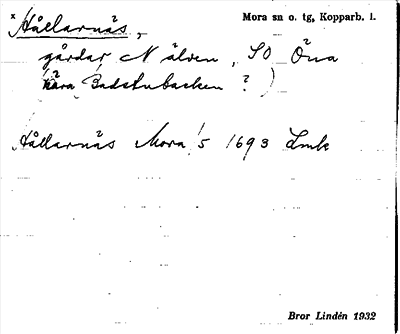 x Hållarnäs, Mora sn o. tg, Kopparb. l.
gårdar, N älven, SO Öna
(nära Badstubacken ?)
Hållarnäs Mora 1/5 1693 Lmk
Bror Lindén 1932